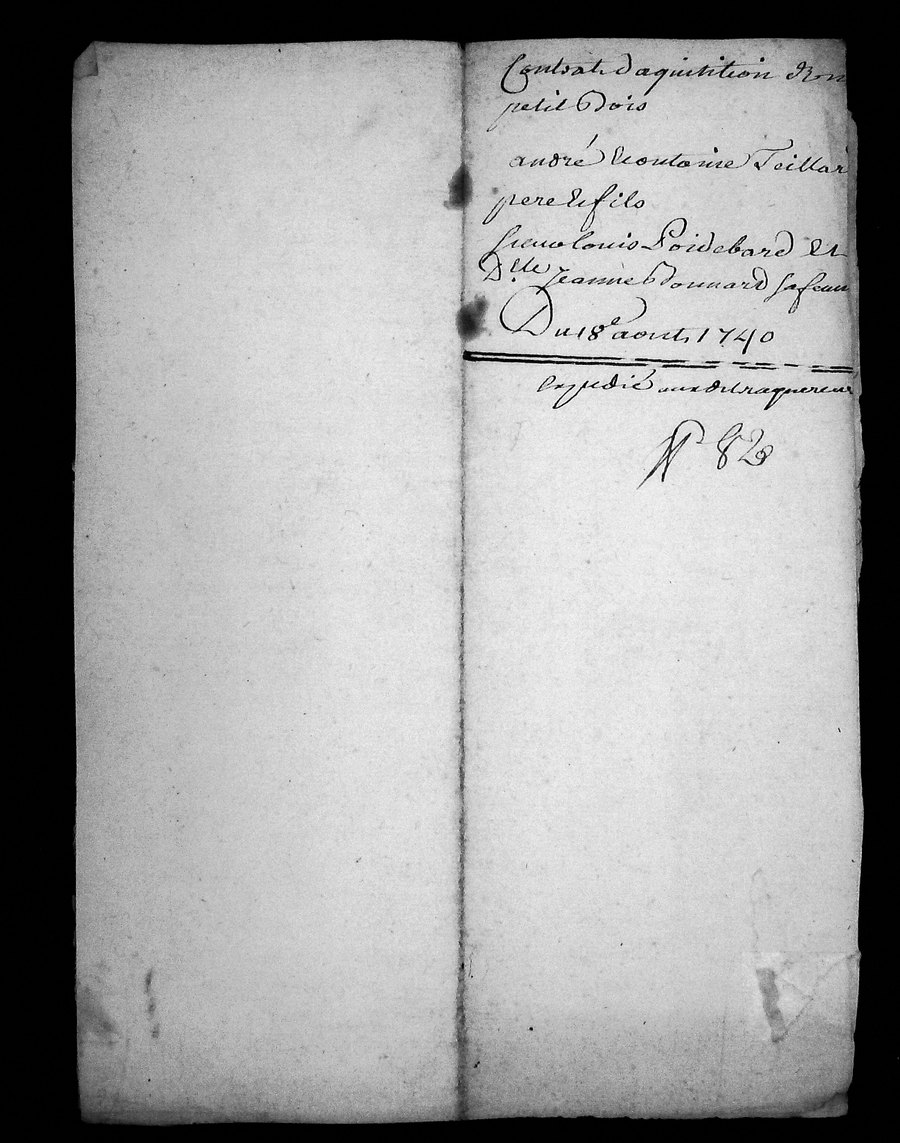 Contrat daquisition d'un
petit Bois
andré et antoine Teillar
pere et fils
sieur louis Poidebard et
D.lle Jeanne Bonnard sa fem
Du 18e aout 1740
expedié auxdits aquereur
N° 82